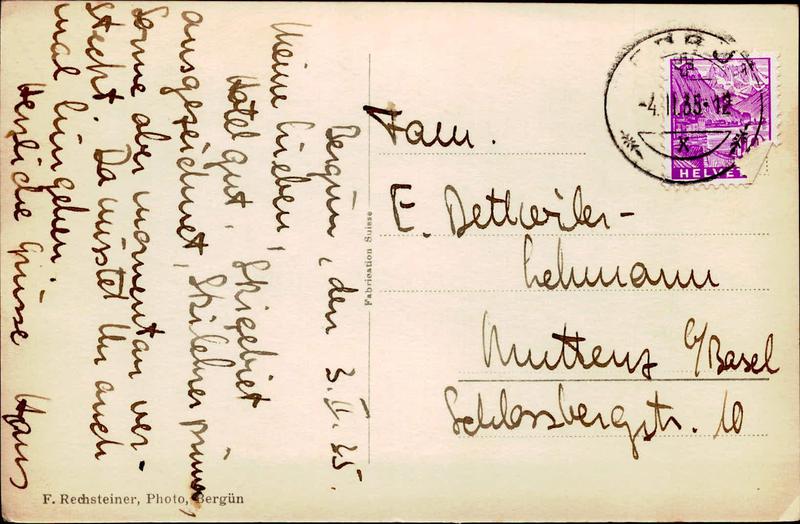 Bergün, den 3. II. 35.
Meine Lieben,
Hotel gut, Skigebiet
ausgezeichnet, Skilehrer prima,
Sonne aber momentan ver-
steckt. Da müsstet Ihr auch
mal hingehen.
Herzliche Grüsse Hans
Fabrication Suisse
Fam.
E. Dettwiler-
Lehmann
Muttenz b/Basel
Schlossbergstr. 10
-4.II.35-12
X
HELVET
F. Rechsteiner, Photo, Bergün